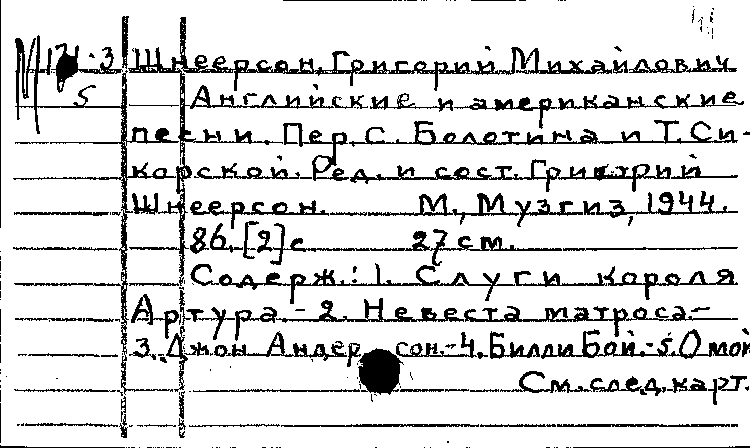 Шнеерсон, Григорий Михайлович
Английские и американские
песни. Пер. С. Болотина и Т. Си-
корской. Ред. и сост. Григорий
Шнеерсон. М., Музгиз, 1944.
86, [2] с 27 см.
Содерж.: 1. Слуги короля
Артура.- 2. Невеста матроса.-
3. Джон Андерсон.-4. Билли Бой.-5. О мой
См. след. карт.